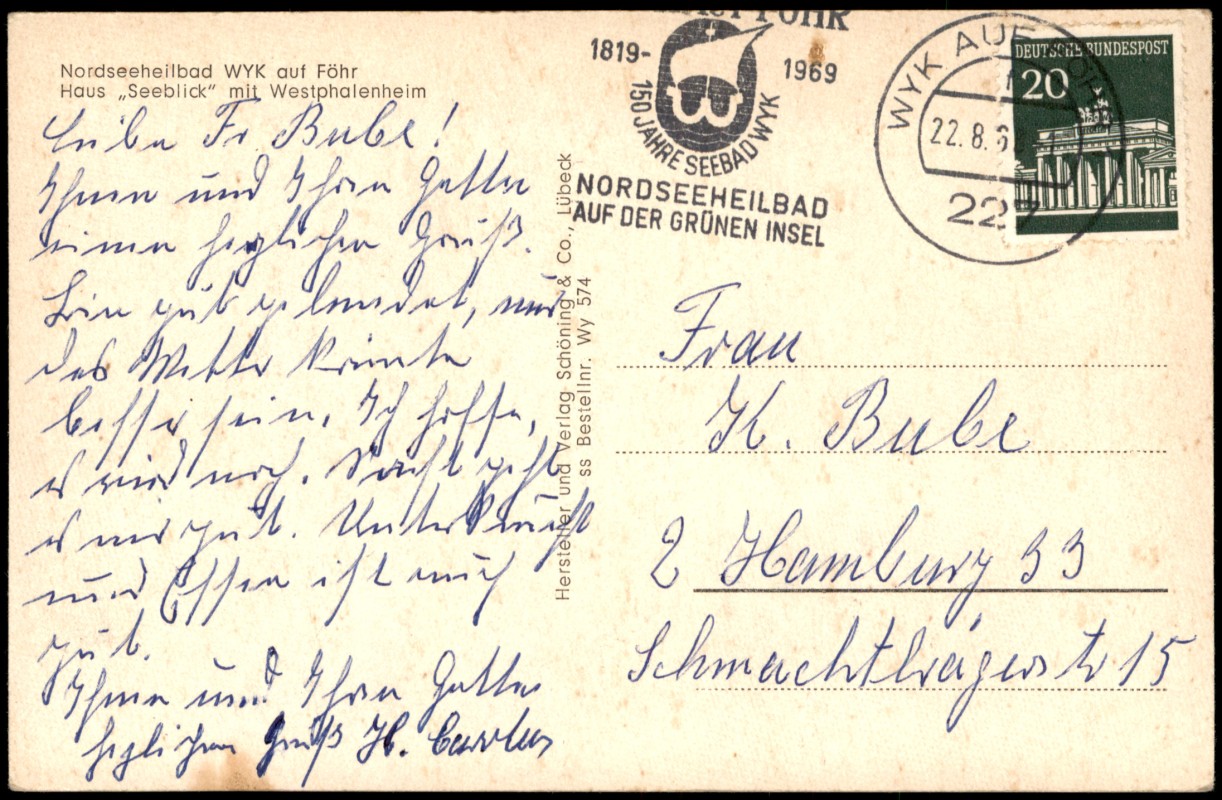 Nordseeheilbad WYK auf Föhr
Haus „Seeblick" mit Westphalenheim
Liebe Fr. Bube!
Ihnen und Ihren Gatten
einen herzlichen Gruß.
Bin gut gelandet, nur
das Wetter könnte
besser sein. Ich hoffe,
es wird noch. Sonst geht
es mir gut. Unterkunft
und Essen ist auch
gut.
Ihnen und Ihren Gatten
herzlichen Gruß H.
Hersteller und Verlag Schöning & Co., Lübeck
ss Bestellnr. Wy 574
FÖHR
1819-
1969
150 JAHRE SEEBAD WYK
NORDSEEHEILBAD
AUF DER GRÜNEN INSEL
WYK AUF FÖHR
22.8.6
227
DEUTSCHE BUNDESPOST
20
Frau
H. Bube
2 Hamburg 33
Schmachthägerstr 15